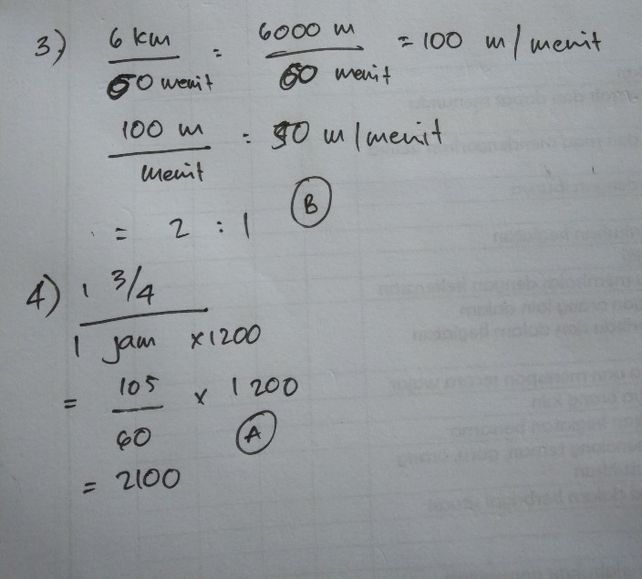 3) 6 km / 60 menit = 6000 m / 60 menit = 100 m/menit
100 m / menit : 50 m/menit
= 2 : 1 B
4) 1 3/4 / 1 jam x 1200
= 105 / 60 x 1200
A
= 2100